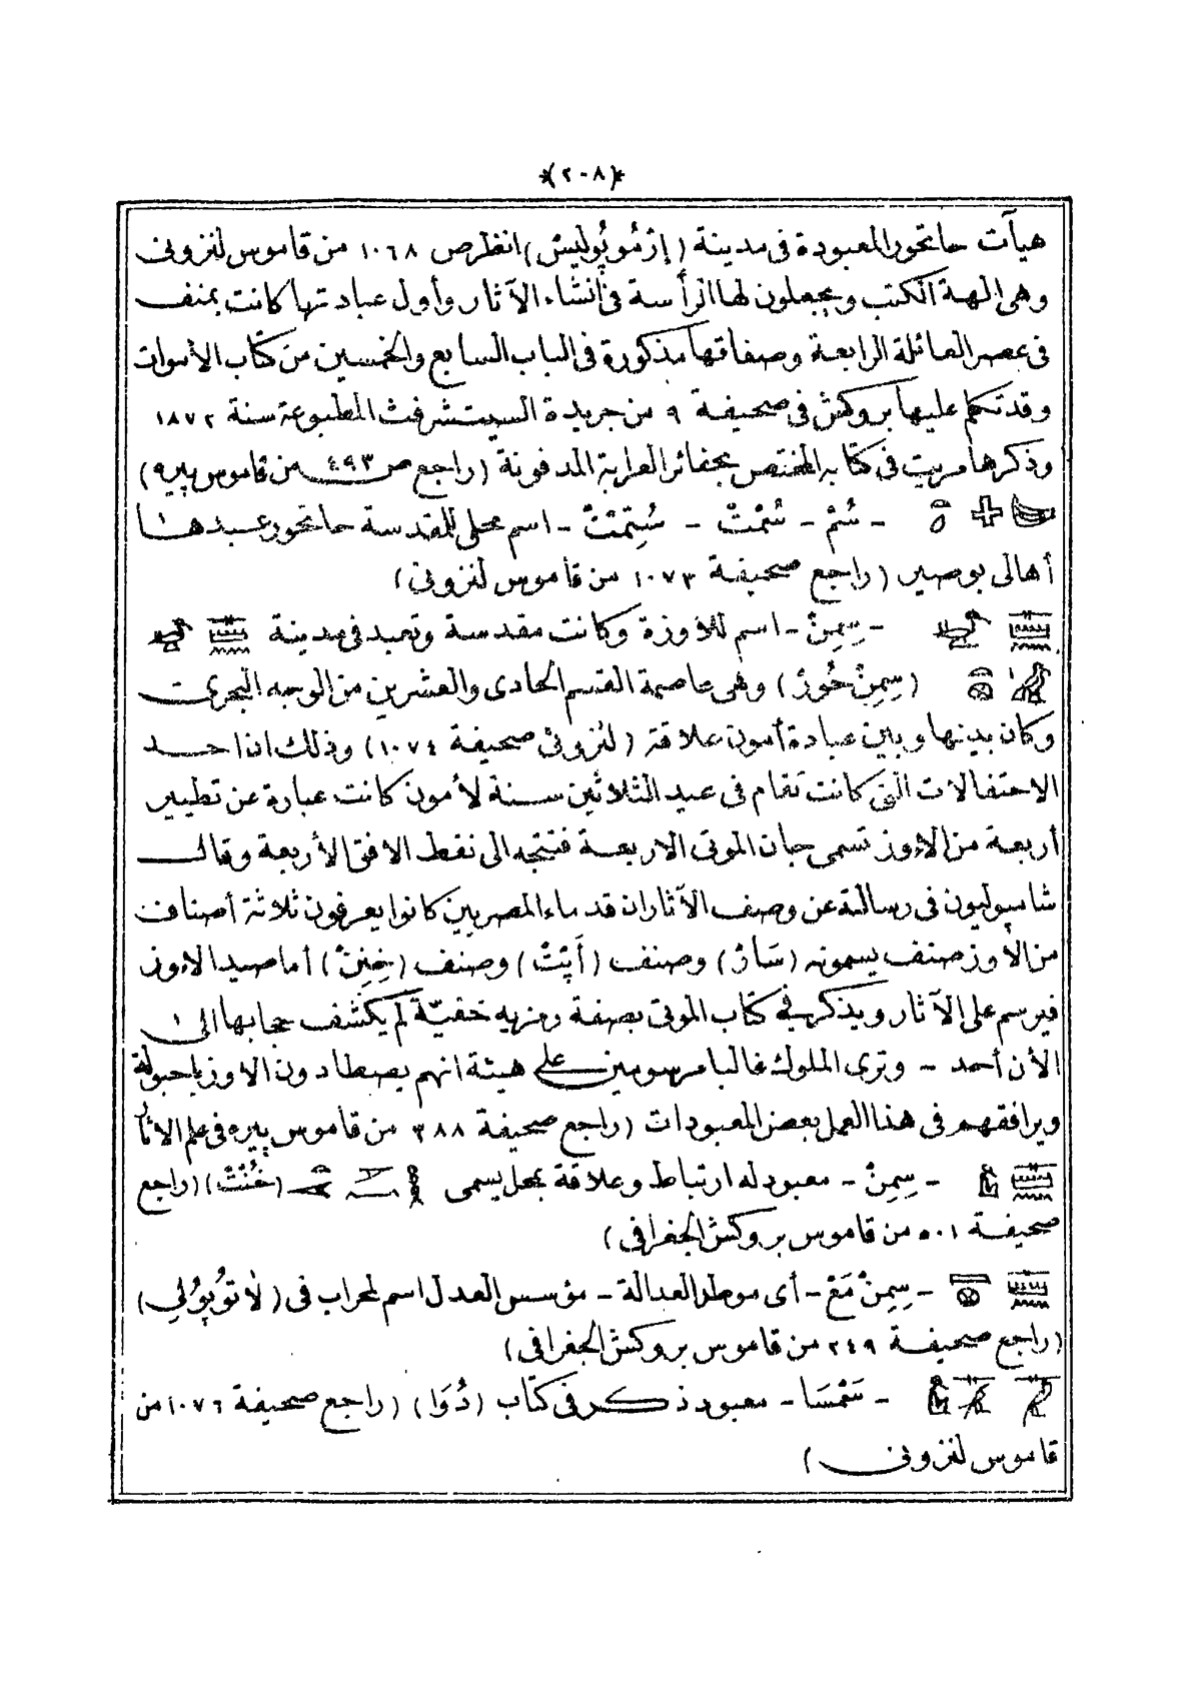 *(٢٠٨)*
هيآت حاتحور المعبودة فى مدينة (إِرْمُو پُوليسْ) انظر ص ١٠٦٨ من قاموس لنزونى
وهى الهة الكتب ويجعلون لها الرأسة فى انشاء الآثار وأول عبادتها كانت بمنف
فى عصر العائلة الرابعة وصفاتها مذكورة فى الباب السابع والخمسين من كتاب الأموات
وقد تكلم عليها بروكش فى صحيفة ٩ من جريدة السيتشرفث المطبوعة سنة ١٨٧٢
وذكرها مريت فى كتابه المختص بحفائر العرابة المدفونة (راجع ص ٤٩٣ من قاموس پيره)
- سُمْ - سُمْتْ - سُتِمْتْ - اسم محلى للمقدسة حاتحور عبدها
أهالى بوصير (راجع صحيفة ١٠٧٣ من قاموس لنزونى)
- سِمِنْ - اسم للأوزة وكانت مقدسة وتعبد فى مدينة
(سِمِنْ حُورْ) وهى عاصمة القسم الحادى والعشرين من الوجه البحرى
وكان بينها وبين عبادة أمون علاقة (لنزونى صحيفة ١٠٧٤) وذلك ان احد
الاحتفالات التى كانت تقام فى عيد الثلاثين سنة لأمون كانت عبارة عن تطيير
أربعة من الاوز تسمى جبان الموتى الاربعة فتتجه الى نقط الافق الأربعة وقال
شامپوليون فى رسالة عن وصف الآثار ان قدماء المصريين كانوا يعرفون ثلاثة أصناف
من الأوز صنف يسمونه (سَارْ) وصنف (أَپْتْ) وصنف (خِنِنْ) أما صيد الاوز
فيرسم على الآثار ويذكر فى كتاب الموتى بصفة رمزيه خفيّة لم يكشف حجابها الى
الأن أحمد - وترى الملوك غالبا مرسومين على هيئة انهم يصطادون الاوز باحبولة
ويرافقهم فى هذا العمل بعض المعبودات (راجع صحيفة ٣٨٨ من قاموس پيره فى علم الاثار
- سِمِنْ - معبود له ارتباط وعلاقة بمحل يسمى (خُنْتْ) (راجع
صحيفة ٥٠١ من قاموس بروكش الجغرافى)
- سِمِنْ مَعْ - أى موطد العدالة - مؤسس العدل اسم لمحراب فى (لَاتُوپُولِى)
(راجع صحيفة ٢٤٩ من قاموس بروكش الجغرافى)
- سَمْسَا - معبود ذكر فى كتاب (دُوَا) (راجع صحيفة ١٠٧٦ من
قاموس لنزونى)